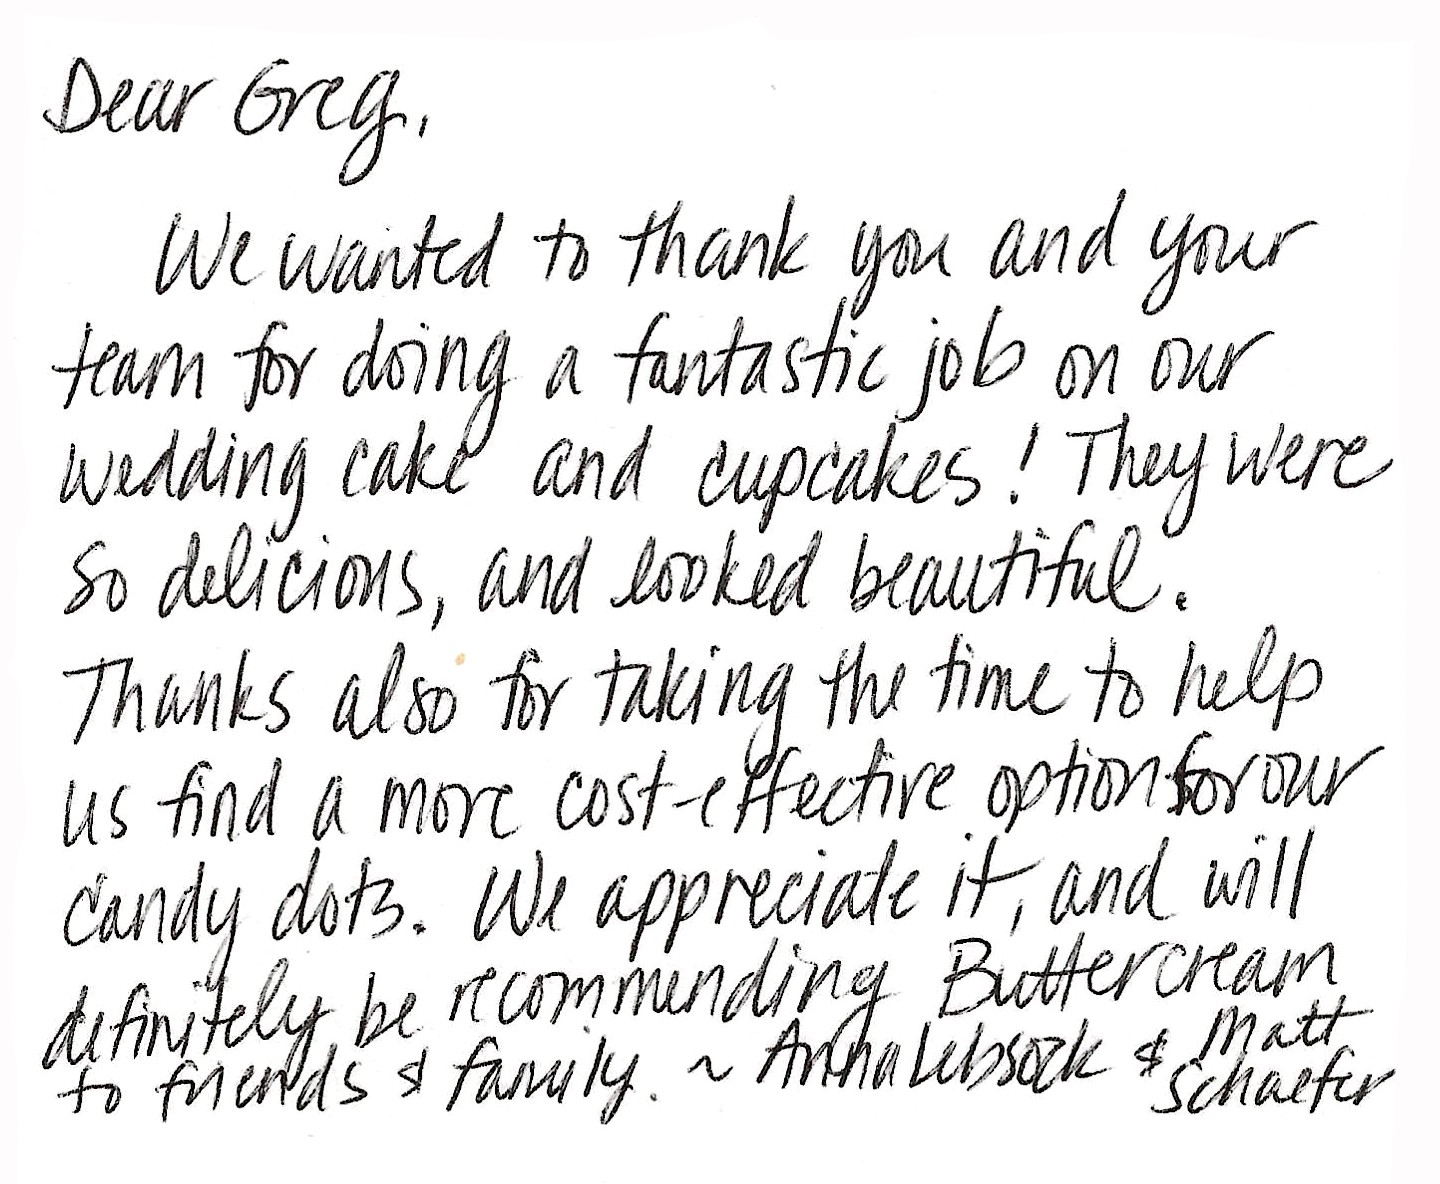 Dear Greg,
We wanted to thank you and your
team for doing a fantastic job on our
wedding cake and cupcakes! They were
so delicious, and looked beautiful.
Thanks also for taking the time to help
us find a more cost-effective option for our
candy dots. We appreciate it, and will
definitely be recommending Buttercream
to friends & family. ~ Anna Lebsock & Matt
Schaefer